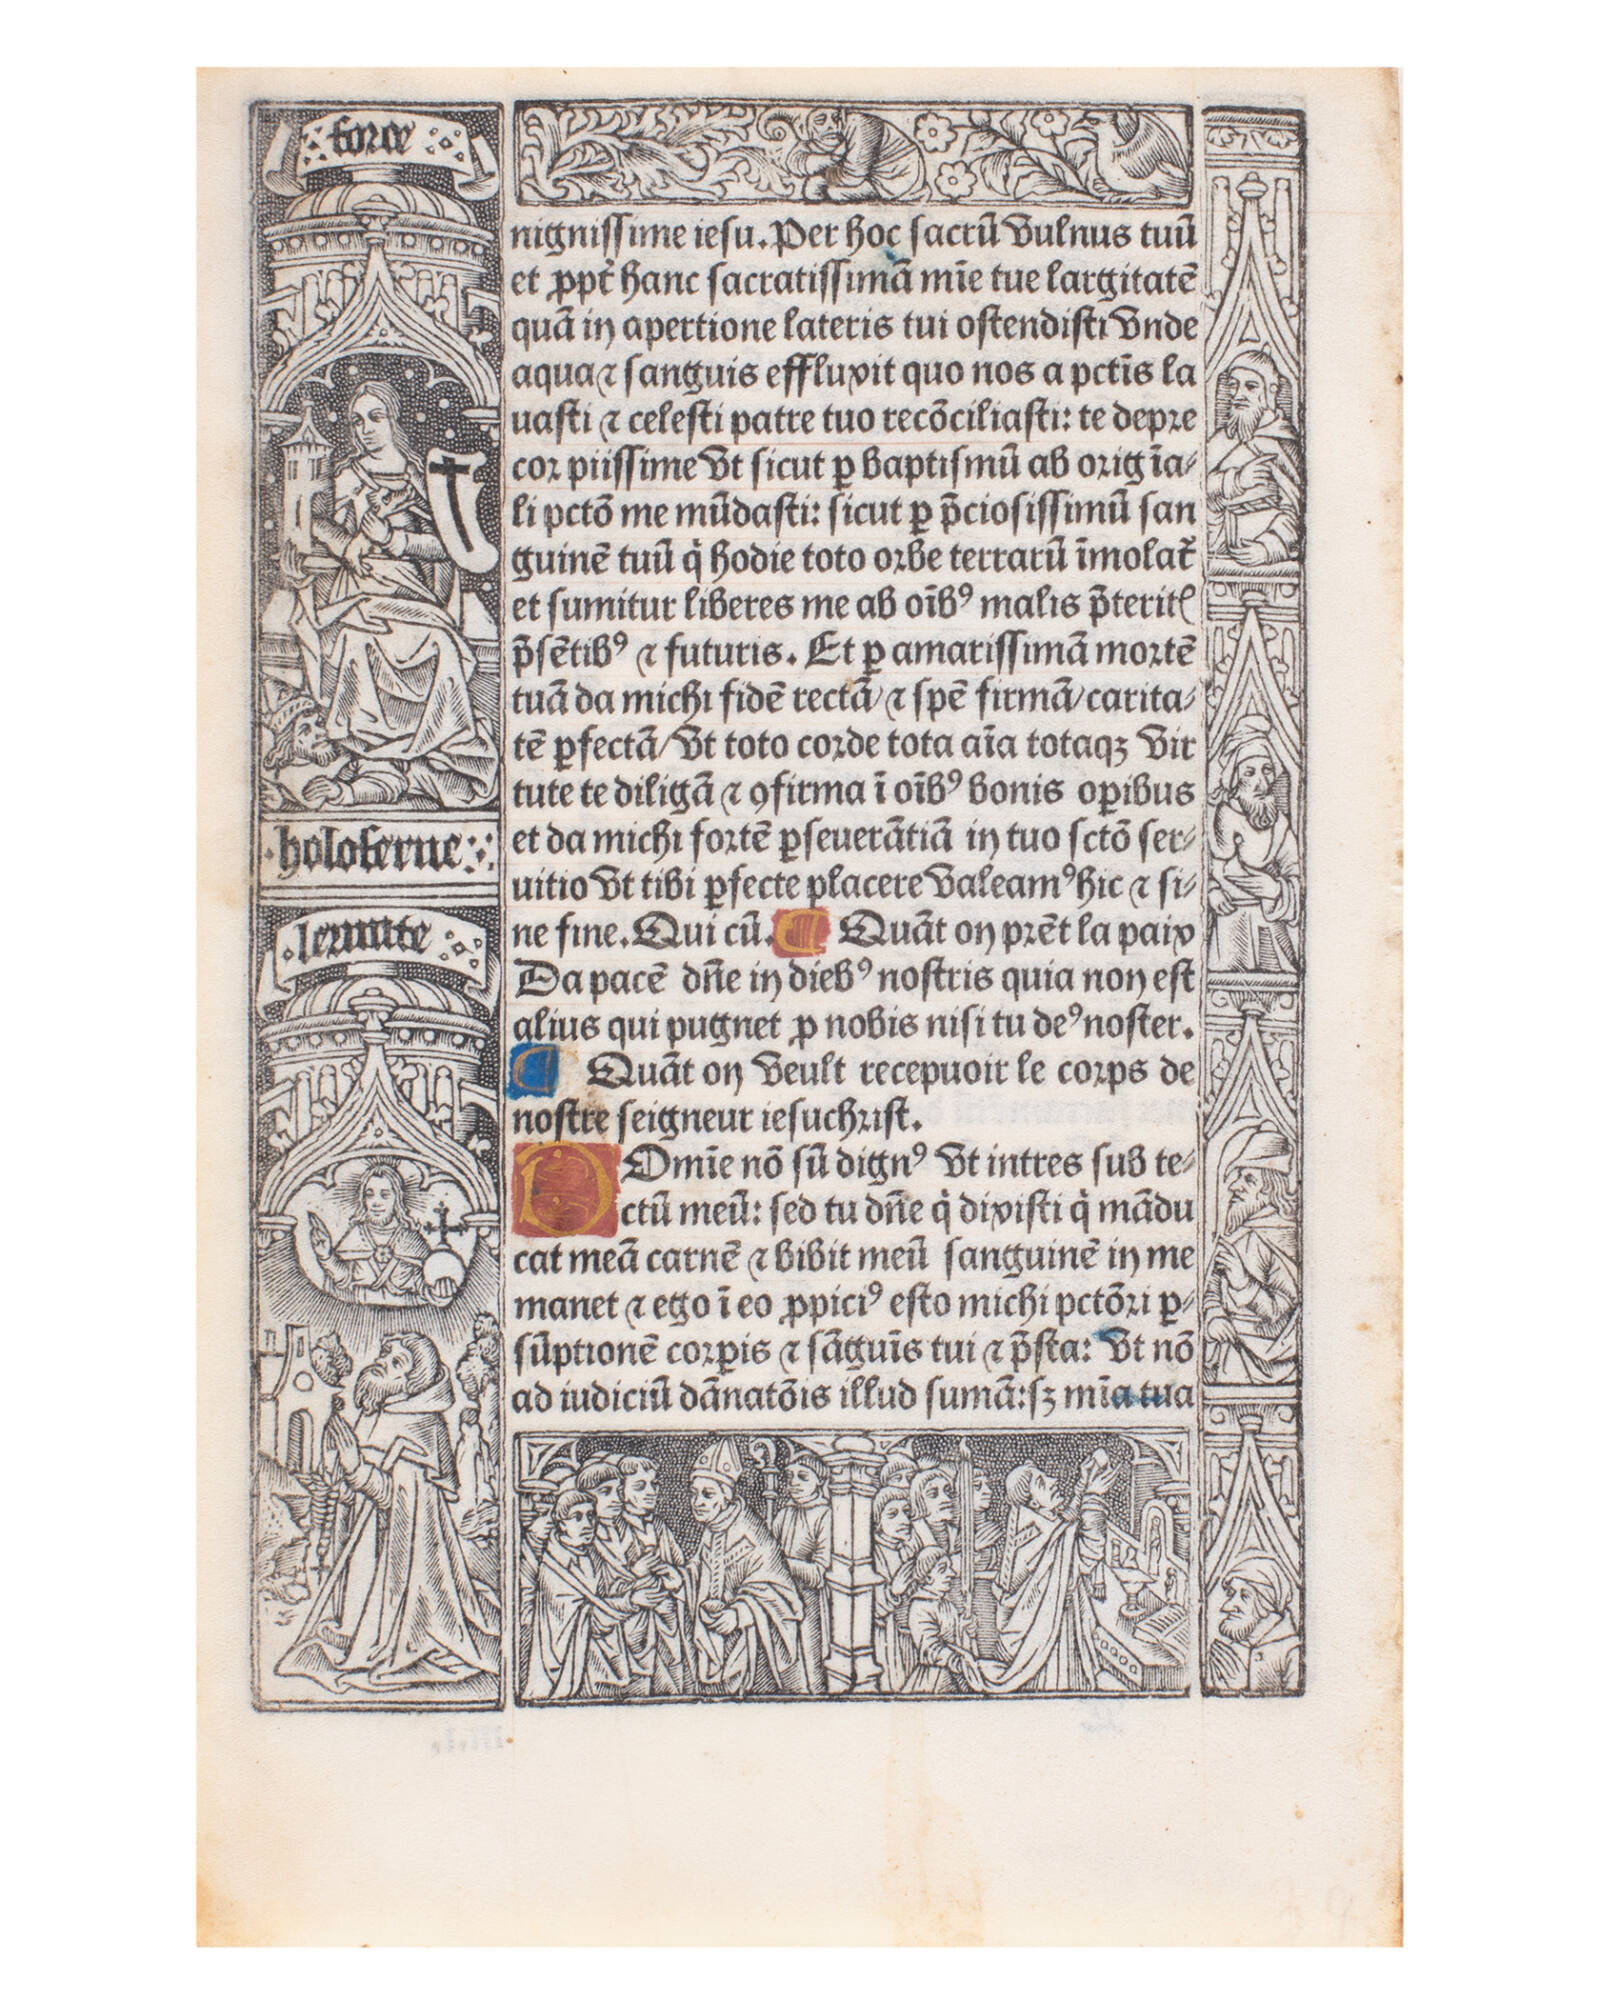 force
holoferne
lermite
nignissime iesu. Per hoc sacrū vulnus tuū
et ꝓpt̄ hanc sacratissimā mīe tue largitatē
quā in apertione lateris tui ostendisti vnde
aqua ⁊ sanguis effluxit quo nos a pctīs la
uasti ⁊ celesti patre tuo recōciliasti: te depre
cor piissime vt sicut ꝑ baptismū ab origīa-
li pctō me mūdasti: sicut ꝑ p̄ciosissimū san
guinē tuū q̇ hodie toto orbe terrarū īmolat̄
et sumitur liberes me ab oīb⁹ malis p̄teritꝭ
p̄sētib⁹ ⁊ futuris. Et ꝑ amarissimā mortē
tuā da michi fidē rectā/ ⁊ spē firmā/ carita-
tē ꝑfectā/ vt toto corde tota aīa totaqꝫ vir
tute te diligā ⁊ ꝯfirma ī oīb⁹ bonis oꝑibus
et da michi fortē ꝑseuerātiā in tuo sctō ser-
uitio vt tibi ꝑfecte placere valeam⁹ hic ⁊ si-
ne fine. Qui cū. ¶ Quāt on prēt la paix
Da pacē dn̄e in dieb⁹ nostris quia non est
alius qui pugnet ꝓ nobis nisi tu de⁹ noster.
¶ Quāt on veult recepuoir le corps de
nostre seigneur iesuchrist.
D Omīe nō sū dign⁹ vt intres sub te-
ctū meū: sed tu dn̄e q̇ dixisti q̇ mādu
cat meā carnē ⁊ bibit meū sanguinē in me
manet ⁊ ego ī eo ꝓpici⁹ esto michi pctōri ꝑ-
sūptionē corꝑis ⁊ sāguīs tui ⁊ p̄sta: vt nō
ad iudiciū dānatōis illud sumā: sꝫ mīa tua